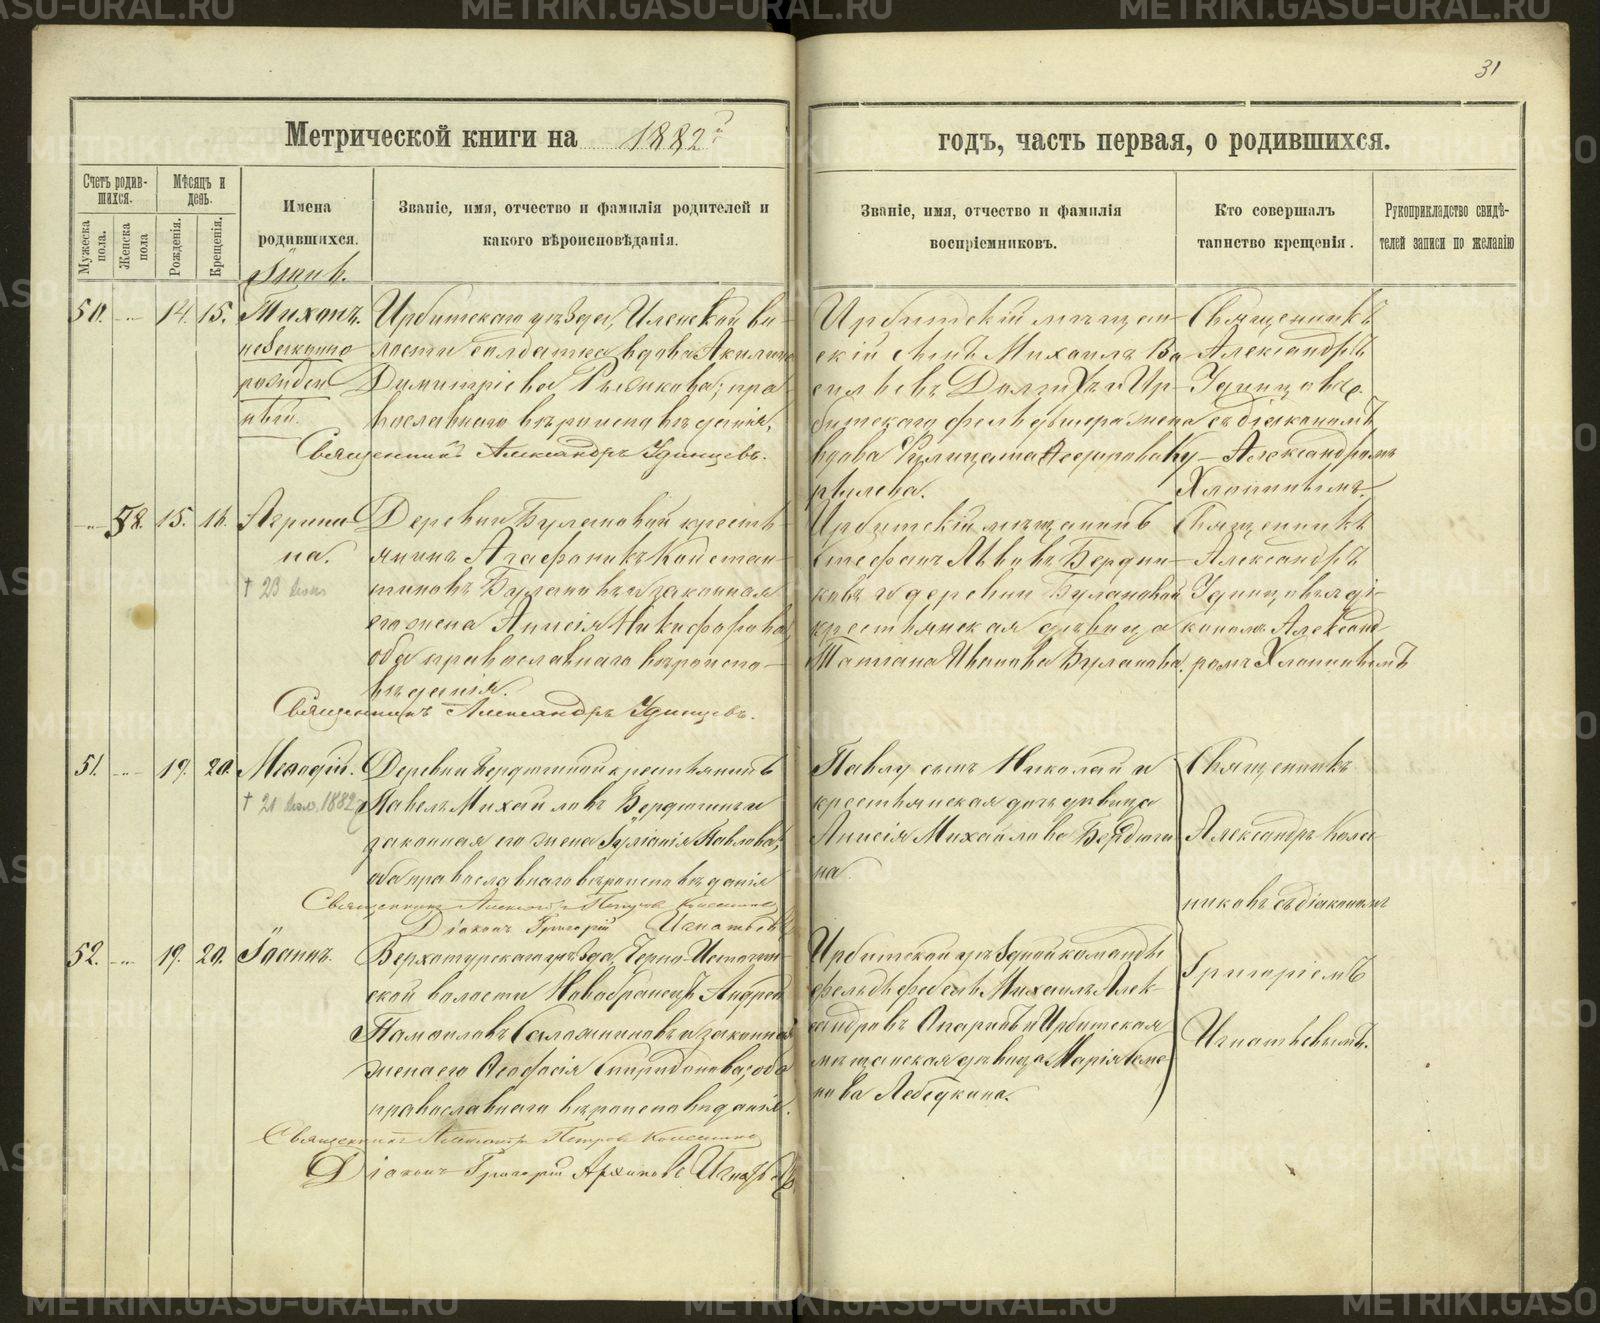 31
Метрической книги на 1882 г.
годъ, часть первая, о родившихся.
Счетъ родив-
шихся.
Мѣсяцъ и
день.
Мужеска пола.
Женска пола
Рожденія.
Крещенія.
Имена
родившихся.
Званіе, имя, отчество и фамилія родителей и
какого вѣроисповѣданія.
Званіе, имя, отчество и фамилія
воспріемниковъ.
Кто совершалъ
таинство крещенія.
Рукоприкладство свидѣ-
телей записи по желанію
50. 14. 15. Тихонъ.
незаконно
рожден
ный.
Ирбитскаго уѣзда,
волости солдатка вдова Акилина
Димитріева православнаго вѣроисповѣданія,
Священникъ Александръ Удинцевъ.
Ирбитскій мѣщан
скій сынъ Михаилъ Ва
сильевъ и Ир
битскаго фельдшера жена
вдова
Священникъ
Александръ
Удинцовъ
съ діакономъ
Александромъ
Хлопиным.
15. 16. Агрипи
на.
† 23
Деревни Булановой кресть-
янинъ Агафоникъ Констан-
тиновъ Булановъ и законная
его жена Анисія Никифорова,
оба православнаго вѣроиспо-
вѣданія.
Священникъ Александръ Удинцевъ.
Ирбитскій мѣщанинъ
Стефанъ Львовъ Бердни-
ковъ и деревни Булановой
крестьянская дѣвица
Татіана Иванова Буланова.
Священникъ
Александръ
Удинцовъ и ді-
кономъ Александ
ромъ Хлопинымъ
51. 19. 20. Меѳодій.
† 21 1882
Деревни Бердюгиной крестьянинъ
Павелъ Михайловъ Бердюгинъ и
законная его жена Іуліанія Павлова,
оба православнаго вѣроисповѣданія
Священникъ Александръ Петровъ
Діаконъ Григорій Игнатьевъ
Павлу сынъ Николай и
крестьянская дочь дѣвица
Анисія Михайлова Бердюги
на.
Священникъ
Александръ Коло
никовъ съ діакономъ
Григоріемъ
Игнатьевымъ.
52. 19. 20. Іоаннъ.
Верхотурскаго уѣзда, Черно-Источин-
ской волости Новобранецъ Андрей
Саламатовъ и законная
жена его Аѳанасія Спиридонова, оба
православнаго вѣроисповѣданія.
Священникъ Александръ Петровъ
Діаконъ Григорій Архиповъ Игнатьевъ
Ирбитской уѣздной команды
фельдфебель Михаилъ Алек-
сандровъ Опаринъ и Ирбитская
мѣщанская дѣвица Марія Семе
нова Лебедкина.
METRIKI.GASO-URAL.RU